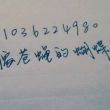 1036224980
海苍蝇的蝴蝶